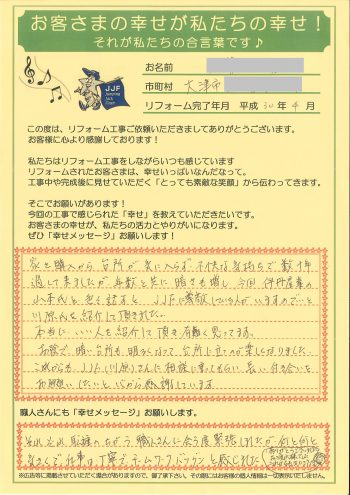 お客さまの幸せが私たちの幸せ！
それが私たちの合言葉です♪
JJF
お名前
市町村 大津市
リフォーム完了年月 平成 30 年 4 月
この度は、リフォーム工事ご依頼いただきましてありがとうございます。
お客様に心より感謝しております！
私たちはリフォーム工事をしながらいつも感じています
リフォームされたお客さまは、幸せいっぱいなんだなって。
工事中や完成後に見せていただく「とっても素敵な笑顔」から伝わってきます。
そこでお願いがあります！
今回の工事で感じられた「幸せ」を教えていただきたいです。
お客さまの幸せが、私たちの活力とやりがいになります。
ぜひ「幸せメッセージ」お願いします！
家を購入から台所が気に入らず不快な気持ちで数十年
過して来ましたが、年数と共に暗さも増し、今回伊丹産業の
山本氏と色々話すと JJFに素敵な人がいますので…と
川原さんを紹介して頂きました。
本当にいい人を紹介して頂き有難く思ってます。
お陰で、暗い台所も明るくなって台所に立つのが楽しくなりました。
これからも、JJF(川原)さんに相談に乗ってもらい長い付き合いを
お願いしたいと心から感謝しています
職人さんにも「幸せメッセージ」お願いします。
職人さんに会う度緊張しましたが、
仕事は丁寧でチームワークバツグンと感じました
ありがとうございました
※広告等に掲載させていただく場合がありますので、御了承下さい。その際にはお客様の個人情報は一切明記いたしません。